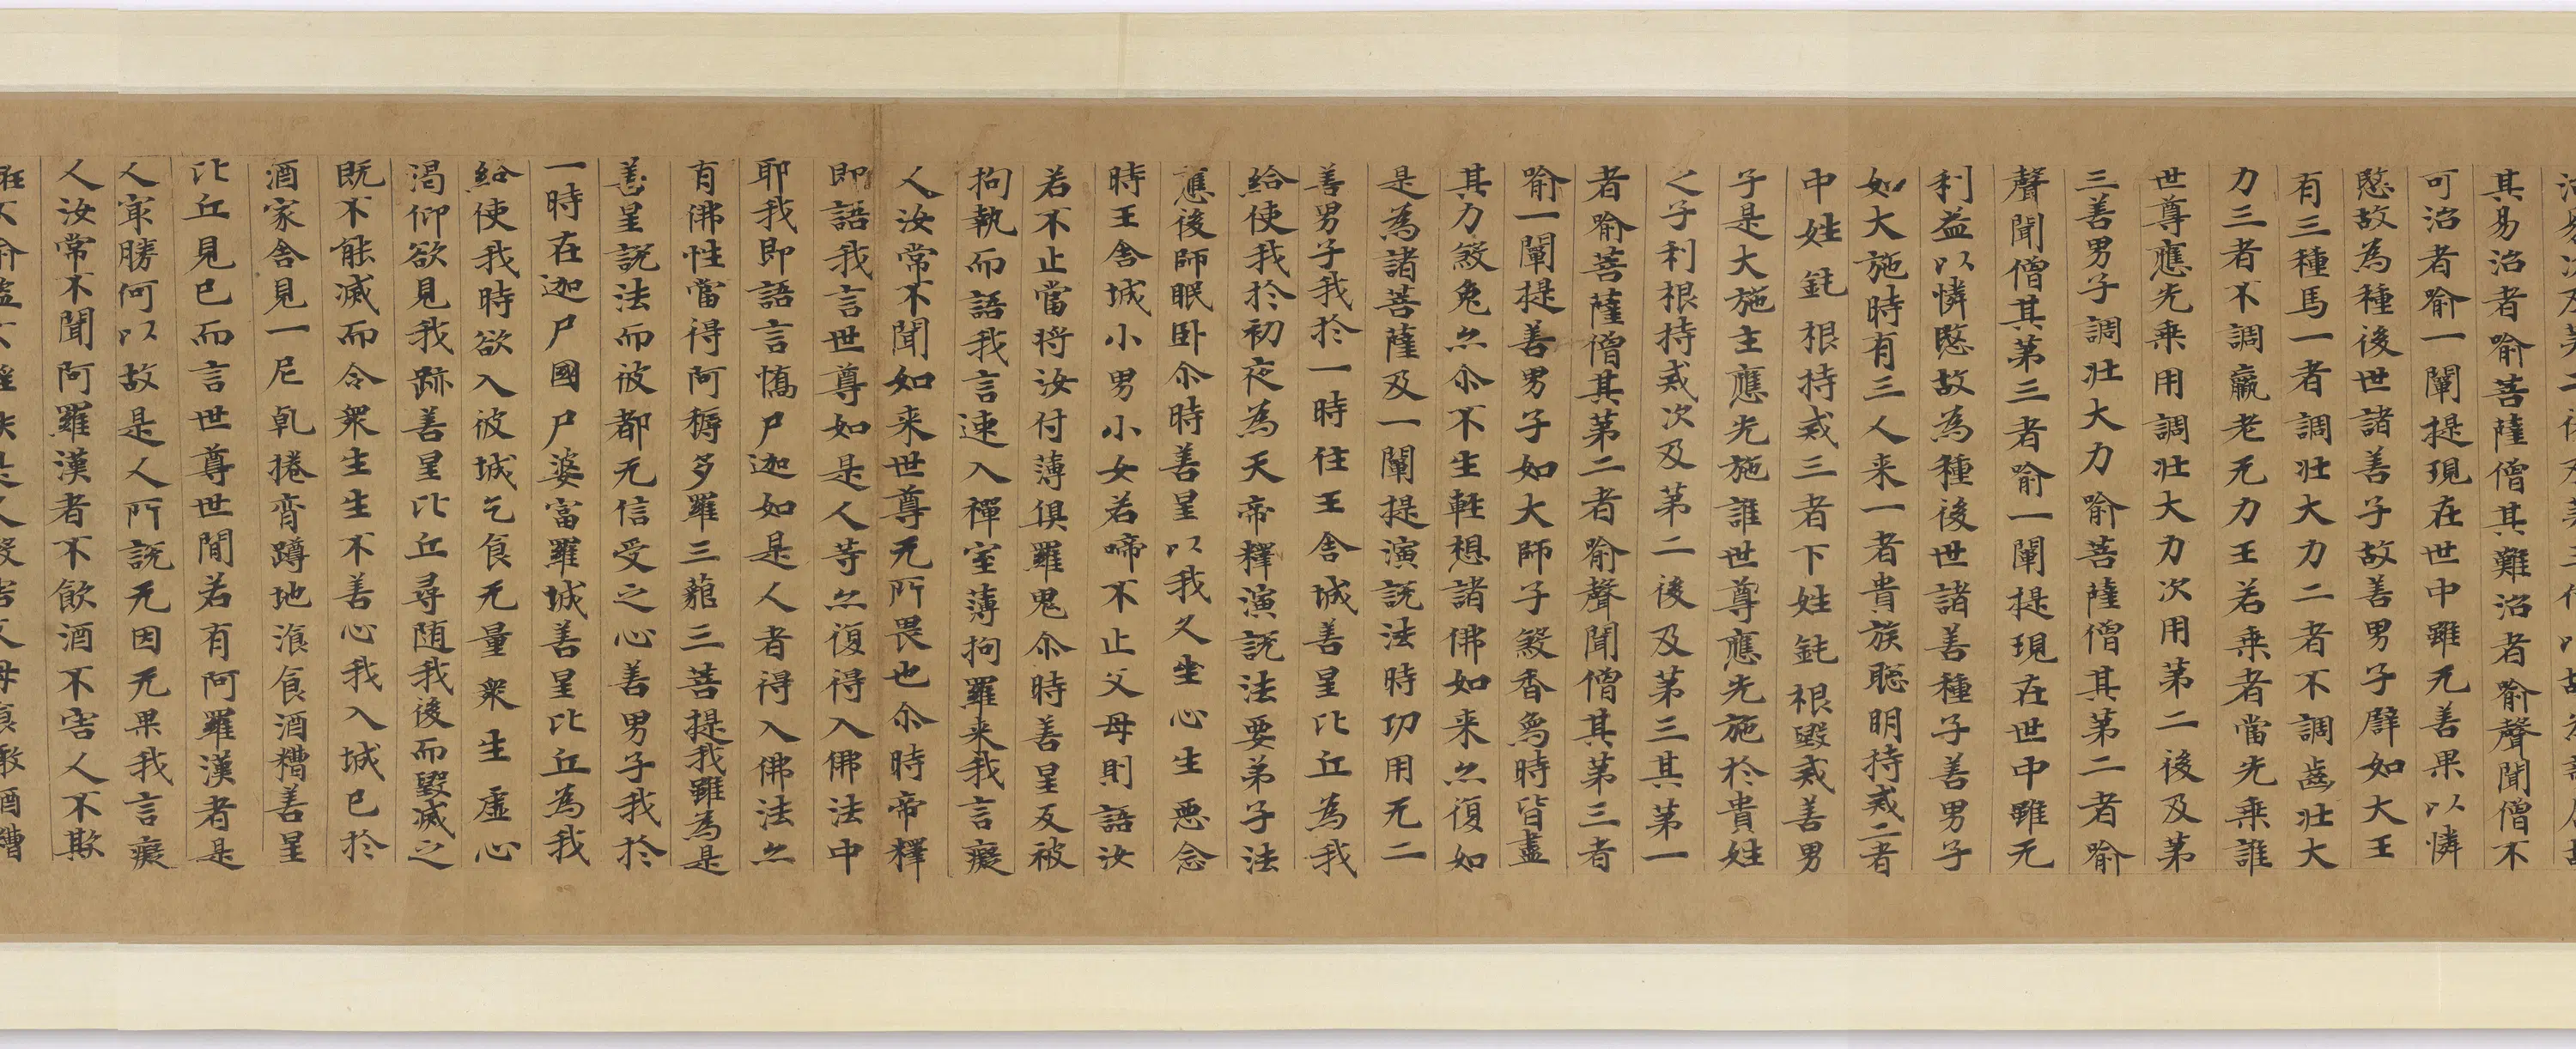 其易治者喻菩薩僧其難治者喻聲聞僧不
可治者喻一闡提現在世中雖无善果以憐
愍故為種後世諸善子故善男子譬如大王
有三種馬一者調壯大力二者不調齒壯大
力三者不調羸老无力王若乘者當先乘誰
世尊應先乘用調壯大力次用第二後及第
三善男子調壯大力喻菩薩僧其第二者喻
聲聞僧其第三者喻一闡提現在世中雖无
利益以憐愍故為種後世諸善種子善男子
如大施時有三人来一者貴族聡明持戒二者
中姓鈍根持戒三者下姓鈍根毀戒善男
子是大施主應先施誰世尊應先施於貴姓
之子利根持戒次及第二後及第三其第一
者喻菩薩僧其第二者喻聲聞僧其第三者
喻一闡提善男子如大師子煞香象時皆盡
其力煞兔亦尒不生軽想諸佛如来亦復如
是為諸菩薩及一闡提演説法時功用无二
善男子我於一時住王舍城善星比丘為我
給使我於初夜為天帝釋演説法要弟子法
應後師眠卧尒時善星以我久坐心生惡念
時王舍城小男小女若啼不止父母則語汝
若不止當将汝付薄俱羅鬼尒時善星反被
拘執而語我言速入禪室薄拘羅来我言癡
人汝常不聞如来世尊无所畏也尒時帝釋
即語我言世尊如是人等亦復得入佛法中
耶我即語言憍尸迦如是人者得入佛法亦
有佛性當得阿耨多羅三藐三菩提我雖為是
善星説法而彼都无信受之心善男子我於
一時在迦尸國尸婆富羅城善星比丘為我
給使我時欲入彼城乞食无量衆生虛心
渴仰欲見我跡善星比丘尋随我後而毀滅之
既不能滅而令衆生生不善心我入城已於
酒家舍見一尼乹捲脊蹲地飡食酒糟善星
比丘見已而言世尊世間若有阿羅漢者是
人㝡勝何以故是人所説无因无果我言癡
人汝常不聞阿羅漢者不飲酒不害人不欺